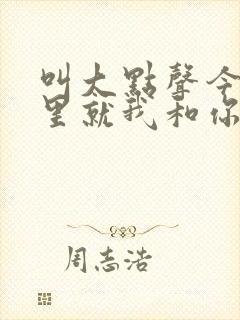 叫大點聲今
里就我和你
周志浩